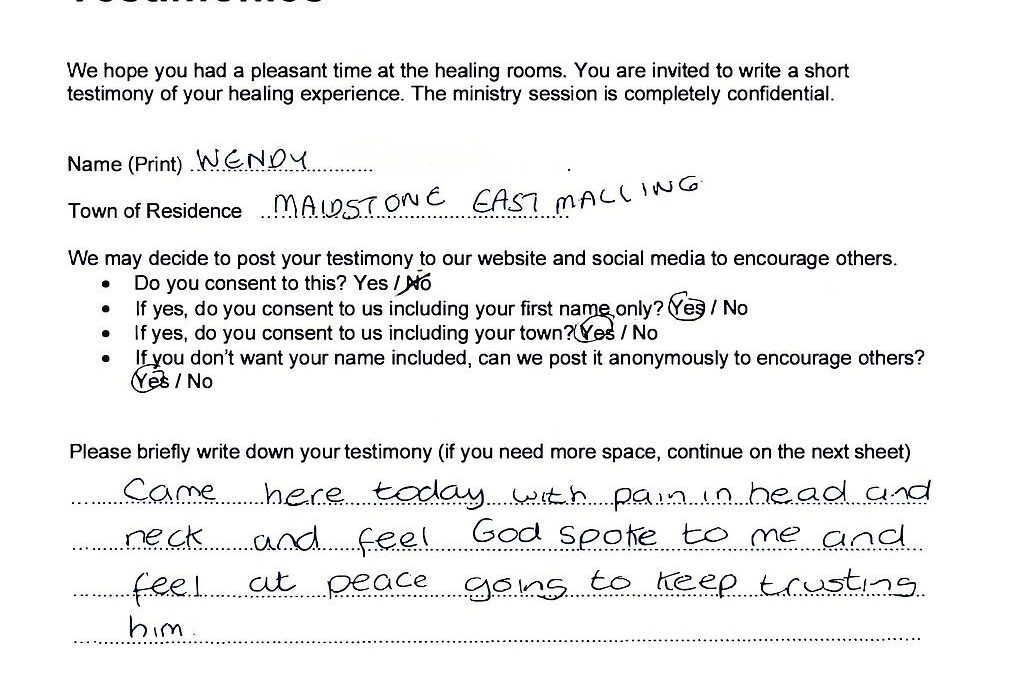 We hope you had a pleasant time at the healing rooms. You are invited to write a short
testimony of your healing experience. The ministry session is completely confidential.
Name (Print) WENDY
Town of Residence MAIDSTONE EAST MALLING
We may decide to post your testimony to our website and social media to encourage others.
• Do you consent to this? Yes / No
• If yes, do you consent to us including your first name only? Yes / No
• If yes, do you consent to us including your town? Yes / No
• If you don't want your name included, can we post it anonymously to encourage others?
Yes / No
Please briefly write down your testimony (if you need more space, continue on the next sheet)
Came here today with pain in head and
neck and feel God spoke to me and
feel at peace going to keep trusting
him.